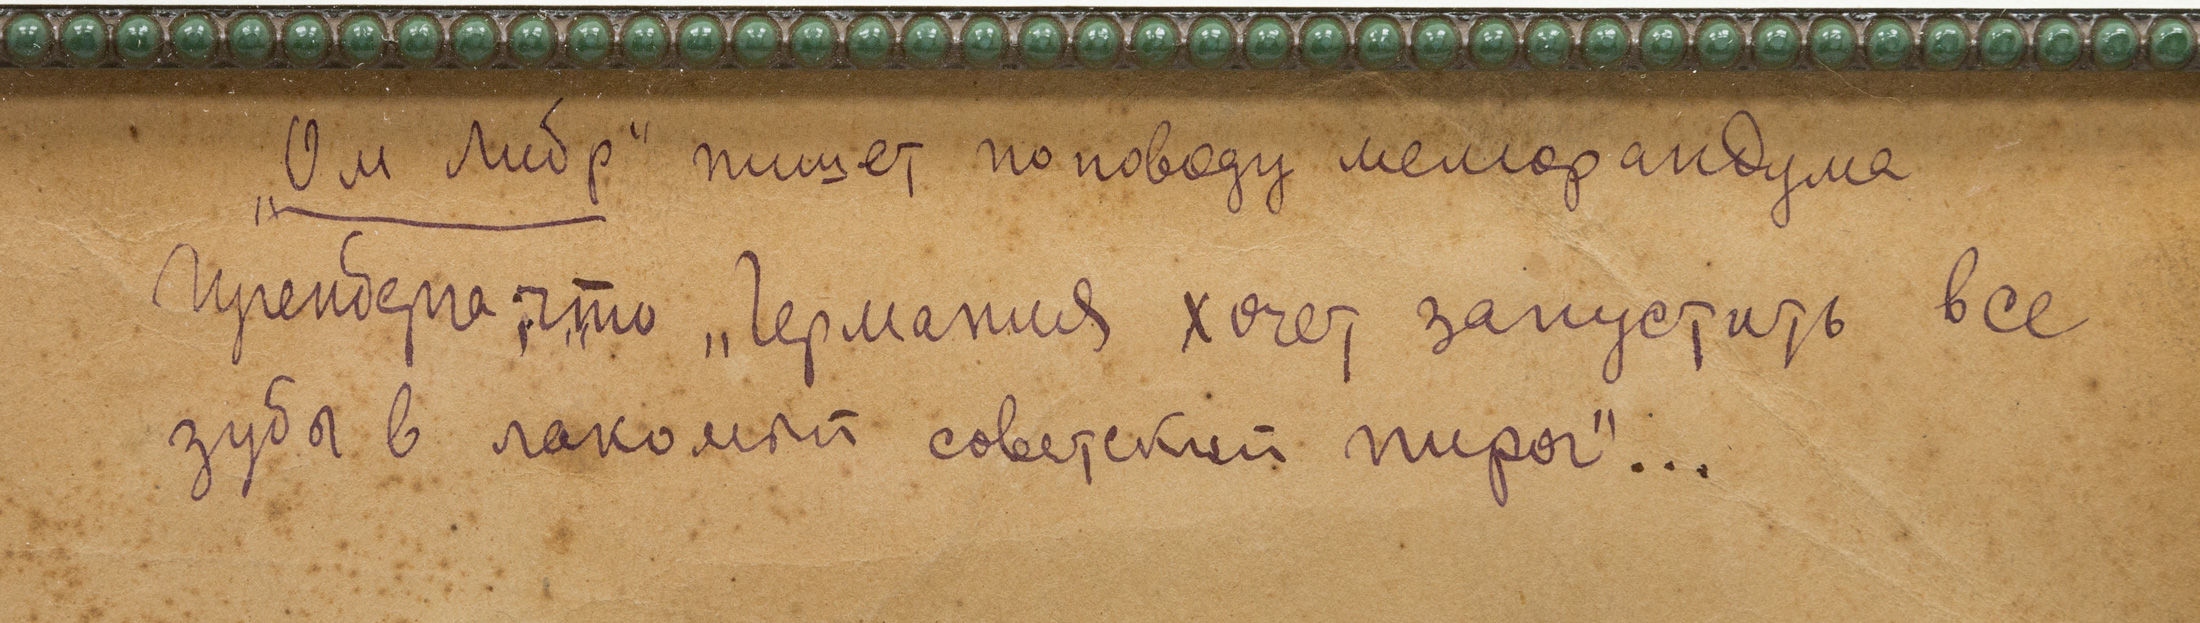 „Ом Либр“ пишет по поводу меморандума
Гугенберга, что „Германия хочет запустить все
зубы в лакомый советский пирог“...